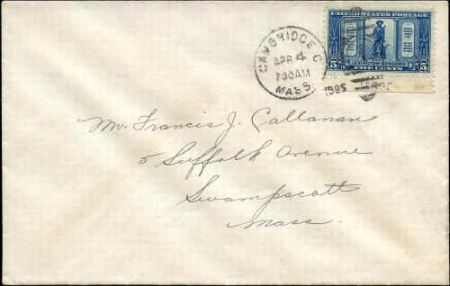 CAMBRIDGE C
APR 4
730AM
1925
MASS.
UNITED STATES POSTAGE
5 5
FIVE CENTS
Mr. Francis J. Callanan
5 Suffolk Avenue
Swampscott
Mass.